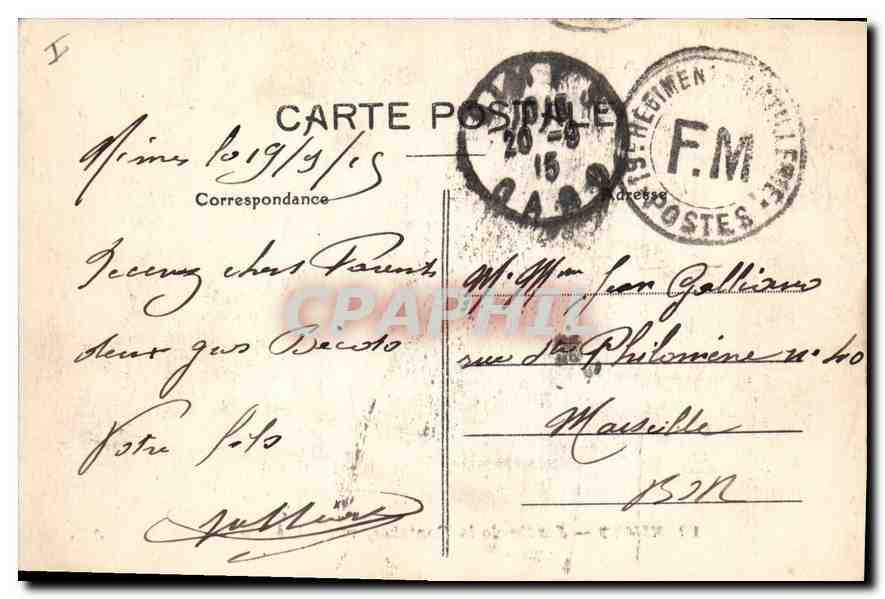 CARTE POSTALE
Nimes le 19/9/15
Correspondance
Recevez chers Parents
deux gros Bécots
Votre fils
Galliano
20 -9
15
GARD
19e REGIMENT D'ARTILLERIE
F.M
POSTES
Adresse
Mr Mme Jean Galliano
rue Ste Philomène n° 40
Marseille
BDR
CPAPHIL